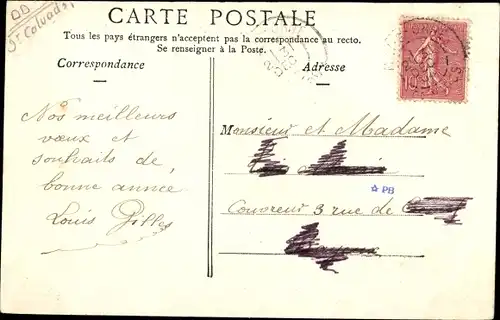 CARTE POSTALE
Tous les pays étrangers n'acceptent pas la correspondance au recto.
Se renseigner à la Poste.
Correspondance
Adresse
Nos meilleurs
vœux et
souhaits de
bonne année
Louis Gilles
Monsieur et Madame
☆ PB
Couvreur 3 rue de